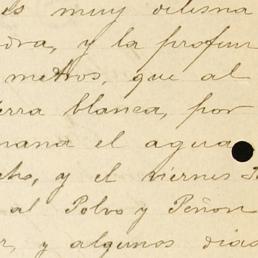 es muy delesna
dra, y la profun
metros, que al
erra blanca, por
nana el agua
cho, y el viernes
al Polvo y Peñon
r, y algunos dias